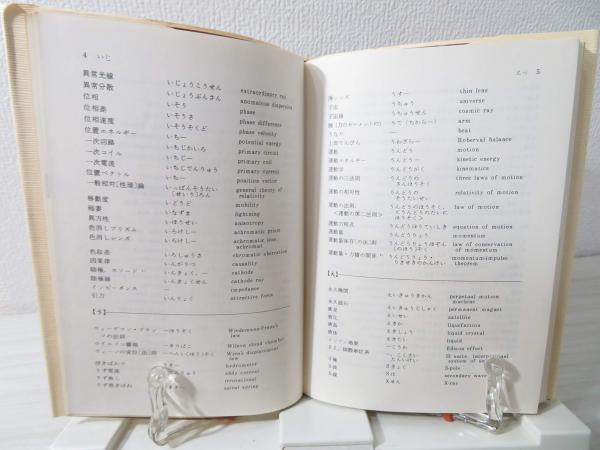 4 いじ
異常光線 いじょうこうせん extraordinary ray
異常分散 いじょうぶんさん anomalous dispersion
位相 いそう phase
位相差 いそうさ phase difference
位相速度 いそうそくど phase velocity
位置エネルギー いちー potential energy
一次回路 いちじかいろ primary circuit
一次コイル いちじー primary coil
一次電流 いちじでんりゅう primary
位置ベクトル いちー position vector
一般相対[性理]論 いっぱんそうたい general theory of
[せいり]ろん relativity
移動度 いどうど mobility
稲妻 いなずま lightning
異方性 いほうせい anisotropy
色消しプリズム いろけしー achromatic prism
色消しレンズ いろけしー achromatic lens,
achromat
色収差 いろしゅうさ chromatic aberration
因果律 いんがりつ causality
陰極, カソード いんきょく, ー cathode
陰極線 いんきょくせん cathode ray
インピーダンス impedance
引力 いんりょく attractive force
【う】
ーほうそく Wiedemann-Franz's
の法則 law
ウイルソン霧箱 ーきりばこ Wilson cloud chamber
ウィーンの変位[法]則 ーへんい[ほう]そく Wien's displacement
law
浮きばかり うきー hydrometer
うず電流 eddy current
うず無し irrotational
うず巻きばね spiral spring
5
薄レンズ うすー thin lens
宇宙 うちゅう universe
宇宙線 うちゅうせん cosmic ray
腕 (力のモーメントの) うで (ちからー) arm
うなり ー beat
上皿てんびん うわざらー Roberval balance
運動 うんどう motion
運動エネルギー うんどうー kinetic energy
運動学 うんどうがく kinematics
運動の三法則 うんどうの three laws of motion
さんほうそく
運動の相対性 うんどうの relativity of motion
そうたいせい
運動の法則, うんどうのほうそく, law of motion
<運動の第二法則> <うんどうのだいに
ほうそく>
運動方程式 うんどうほうていしき equation of motion
運動量 うんどうりょう momentum
運動量保存[の法]則 うんどうりょうほぞん law of conservation
[のほう]そく of momentum
運動量・力積の関係 うんどうりょう・ momentum-impulse
りきせきのかんけい theorem
【え】
永久機関 えいきゅうきかん perpetual motion
machine
永久磁石 えいきゅうじしゃく permanent magnet
衛星 えいせい satellite
液化 えきか liquefaction
液晶 えきしょう liquid crystal
液体 えきたい liquid
エジソン効果 ーこうか Edison effect
SI, 国際単位系 SI units, international
system of units
S極 Sきょく S-pole
S波 Sは secondary wave
X線 Xせん X-ray